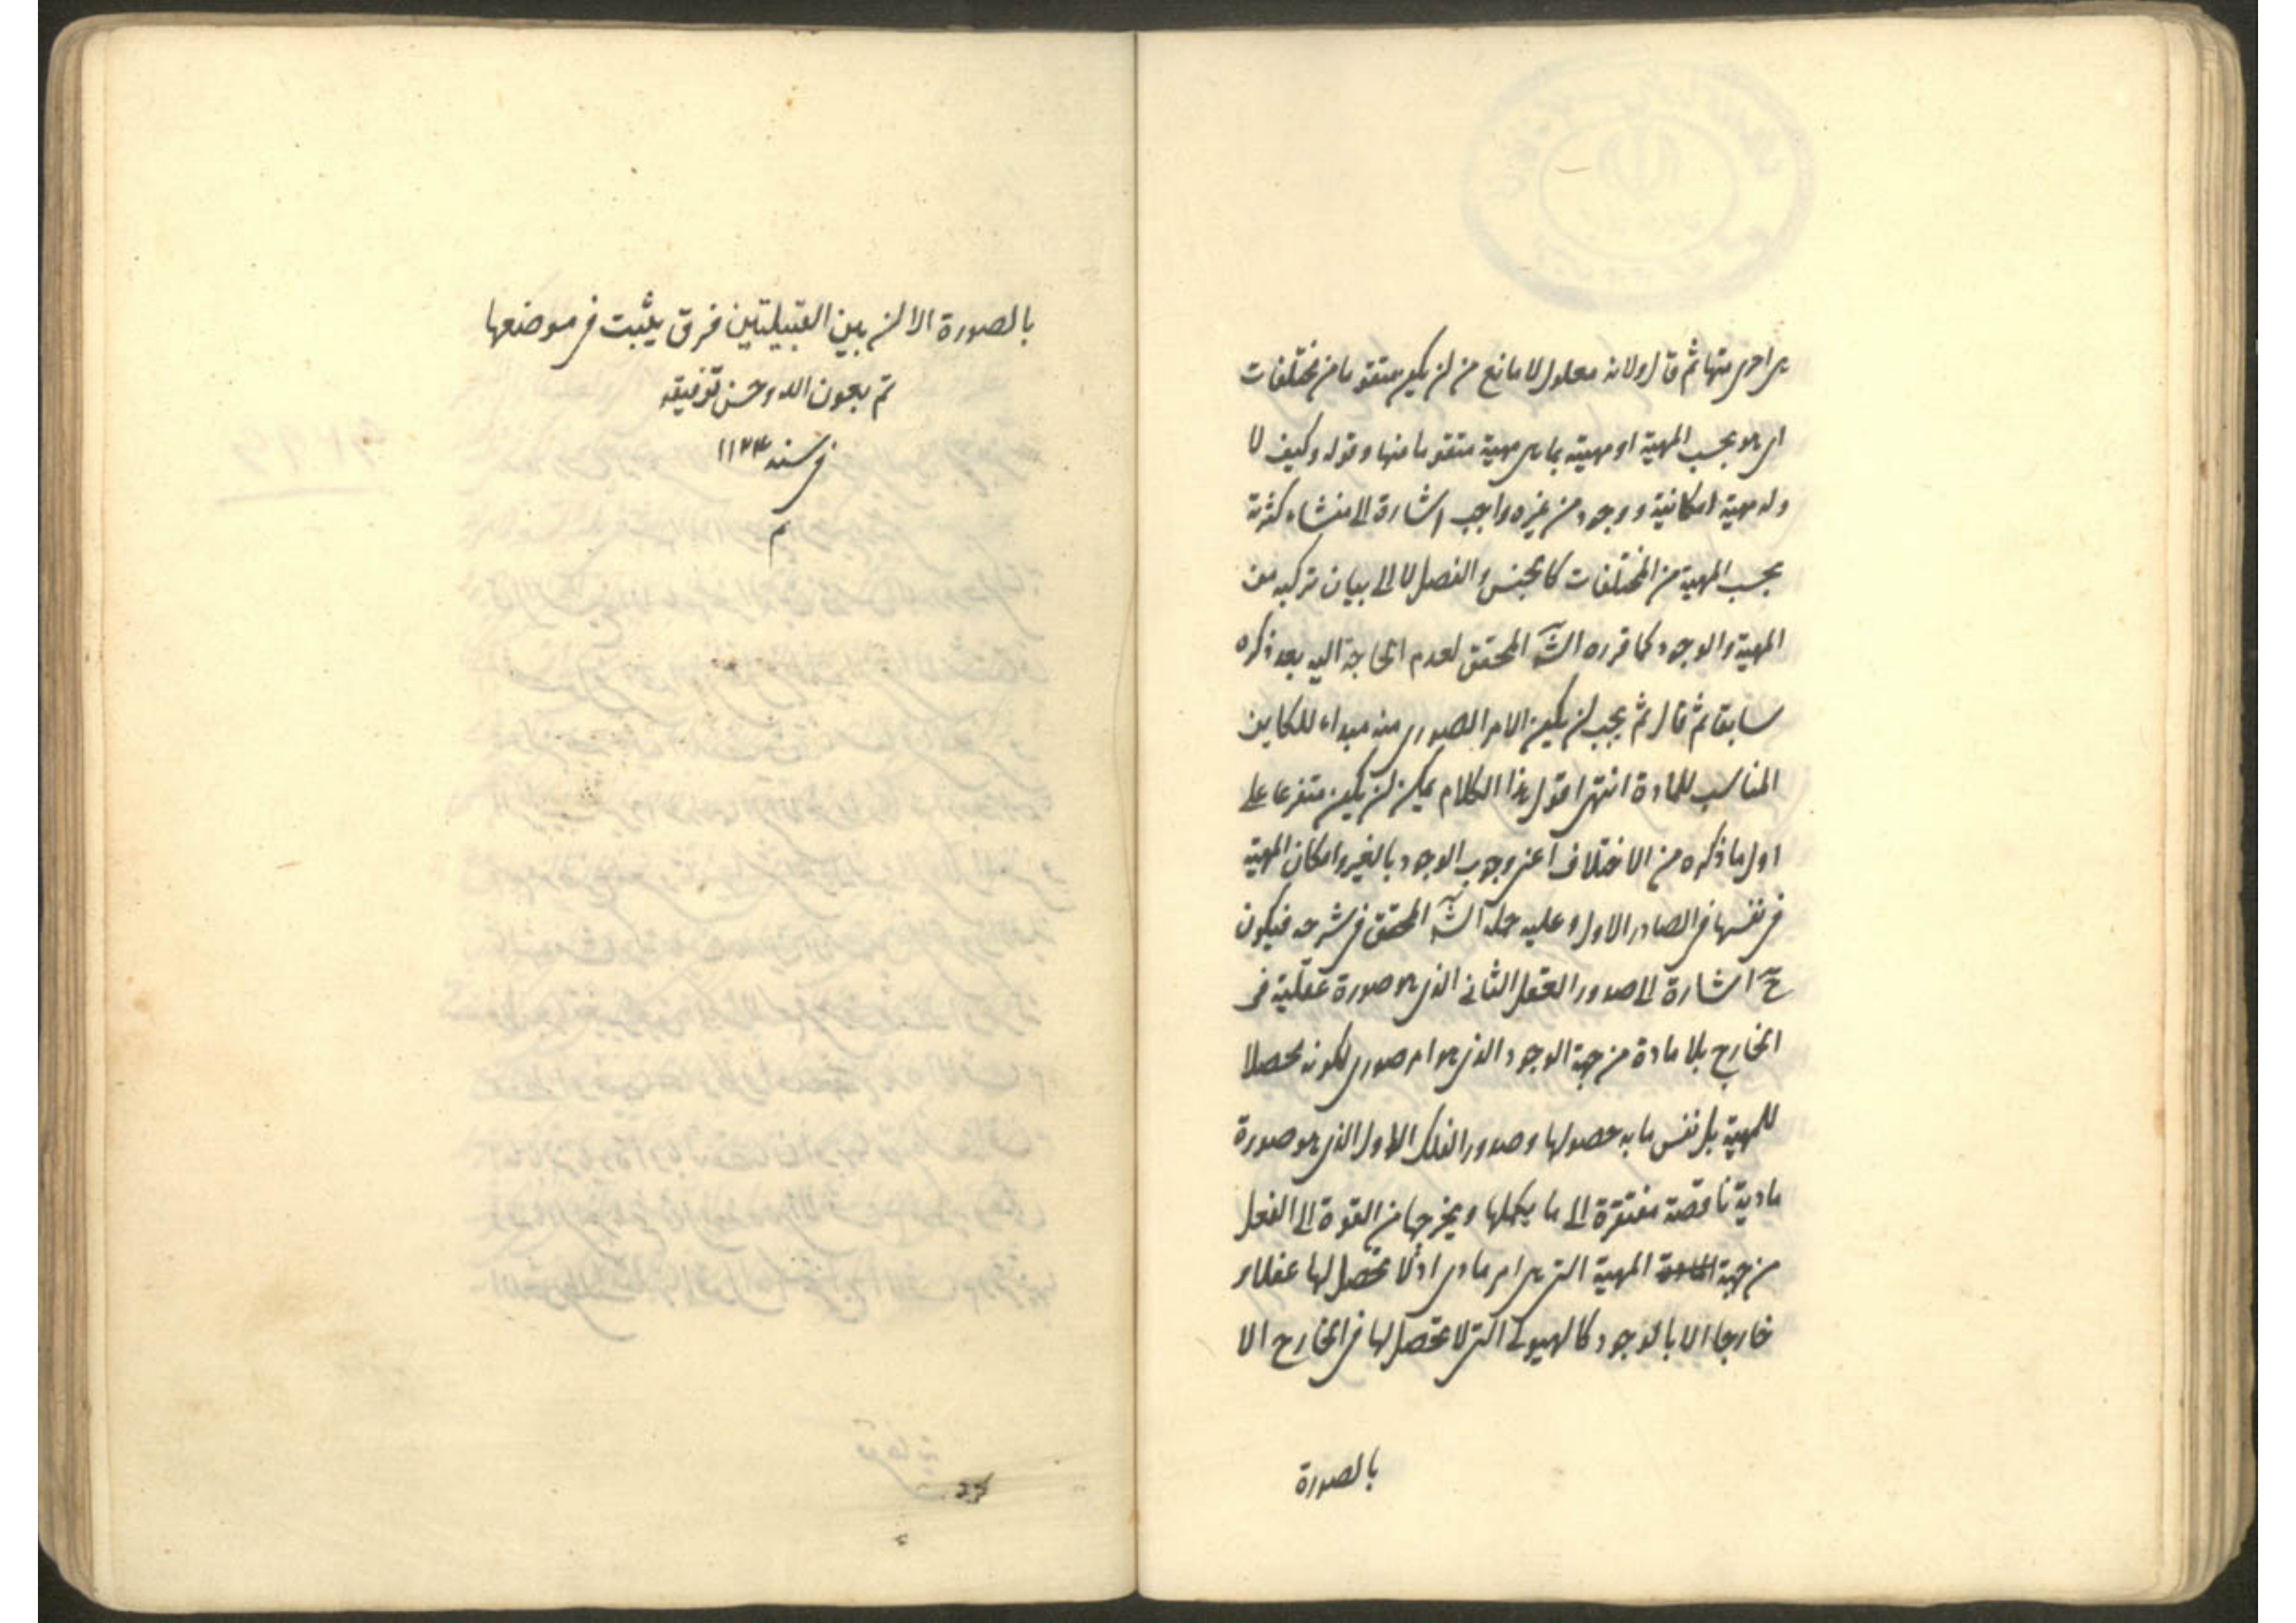 هى احرى منها ثم قال ولانه معلول لا مانع من ان يكون متقوما من مختلفات
اى هو بحسب المهية او مهيته بما هى مهية متقوما منها وقوله وكيف لا
وله مهية امكانية ووجود من غيره واجب اشارة الى منشاء كثرته
بحسب المهية من المختلفات كالجنس والفصل لا الى بيان تركبه من
المهية والوجود كما قرره الشـ المحقق لعدم الحاجة اليه بعد ذكره
سابقا ثم قال ثم يجب ان يكون الامر الصورى منه مبداء للكاين
المناسب للمادة انتهى اقول هذا الكلام يمكن ان يكون متفرعا على
اول ما ذكره من الاختلاف اعنى وجوب الوجود بالغير وامكان المهية
فى نفسها فى الصادر الاول وعليه حمله الشـ المحقق فى شرحه فيكون
ح اشارة الى صدور العقل الثانى الذى هو صورة عقلية فى
الخارج بلا مادة من جهة الوجود الذى هو امر صورى لكونه محصلا
للمهية بل نفس ما به حصولها وصدور الفلك الاول الذى هو صورة
مادية ناقصة مفتقرة الى ما يكملها ويخرجها من القوة الى الفعل
من جهة المهية التى هى امر مادى اذ لا تحصل لها عقلا و
خارجا الا بالوجود كالهيولى التى لا تحصل لها فى الخارج الا
بالصورة
بالصورة الا ان بين القبيلتين فرق يثبت فى موضعها
تم بعون الله وحسن توفيقه
فى سنه ١١٢٤
م